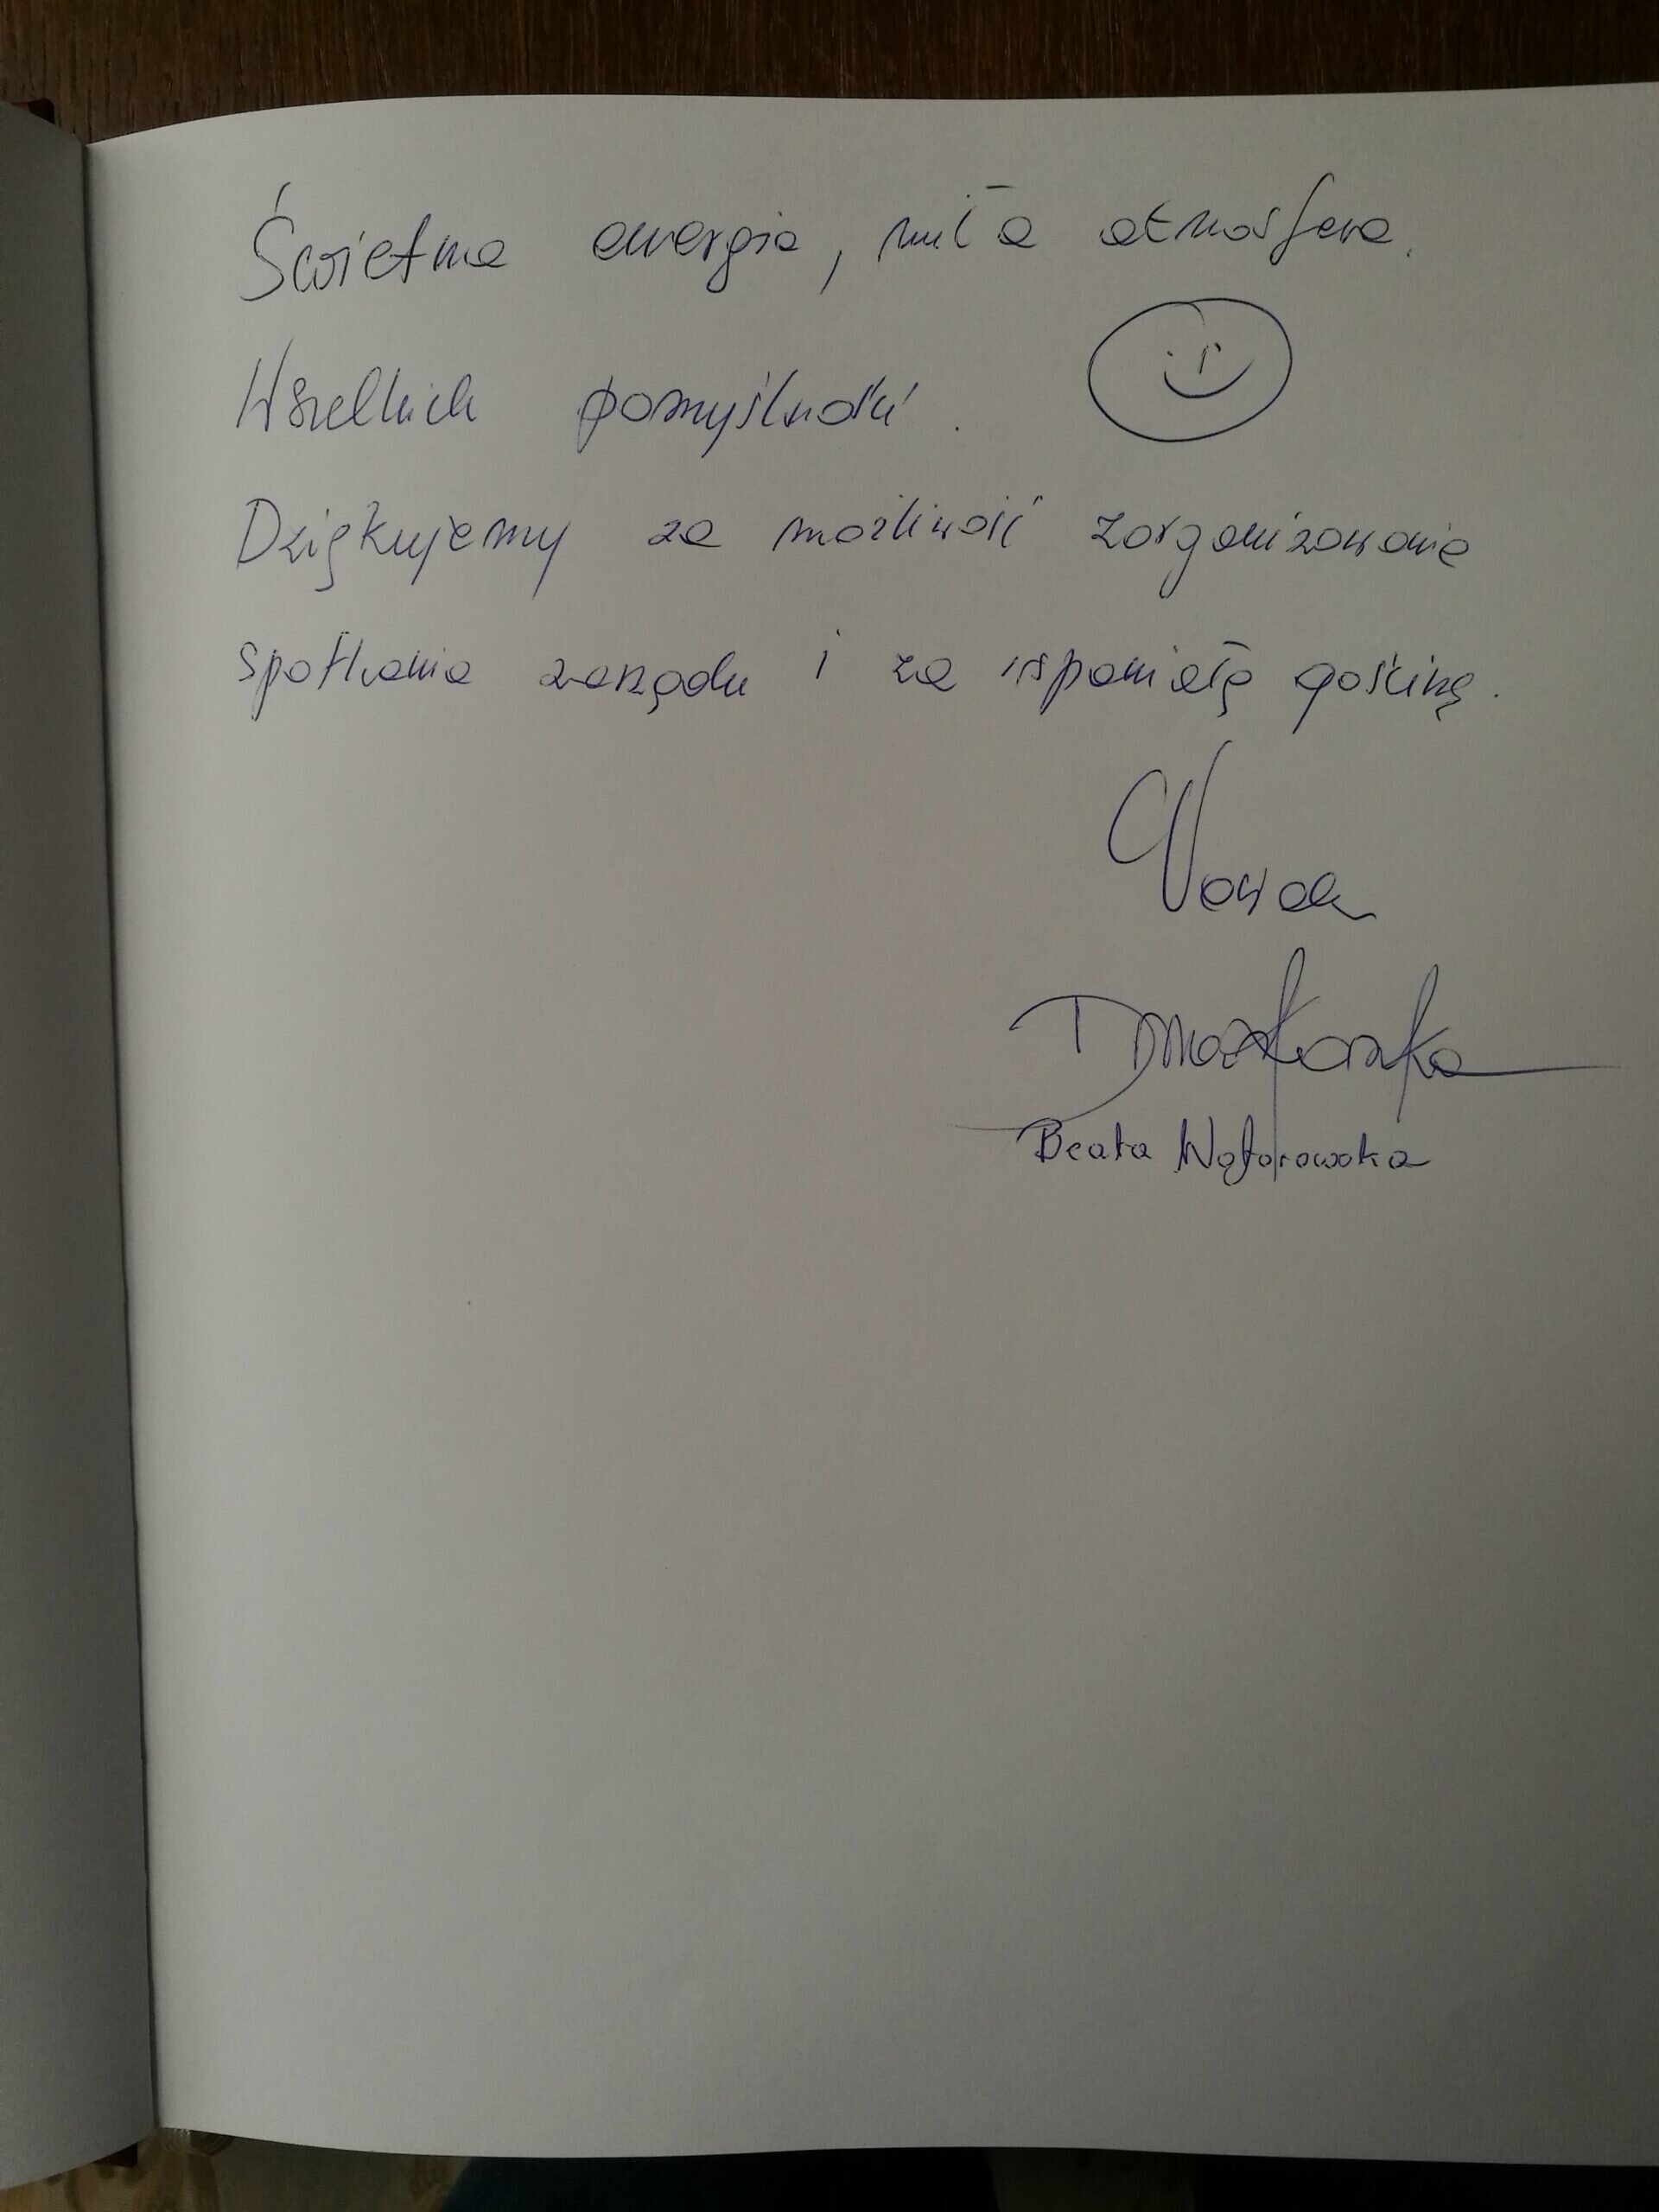 Świetna energia, miła atmosfera.
Wszelkich pomyślności.
Dziękujemy za możliwość zorganizowania
spotkania zarządu i za wspaniałą gościnę.
Beata Wątorowska